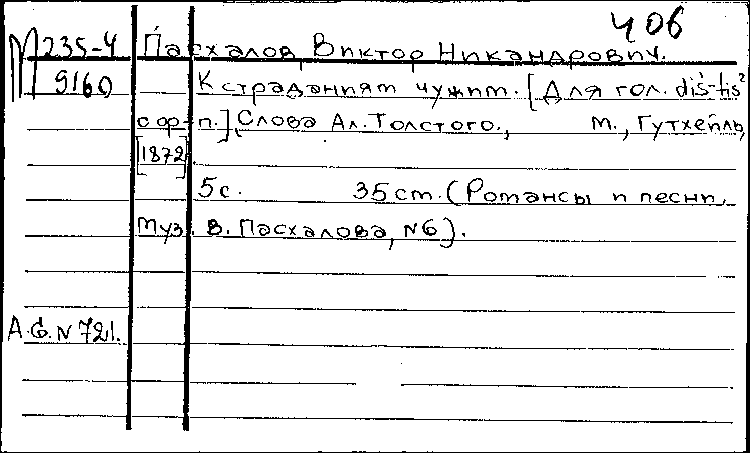 406
М 235-4 Пасхалов, Виктор Никандрович.
9160 К страданиям чужим. [Для гол. dis¹-fis²
с ф-п.] Слова Ал. Толстого., М., Гутхейль,
[1872]
5 с. 35 ст. (Романсы и песни,
Муз. В. Пасхалова, N6).
А.С. N 721.